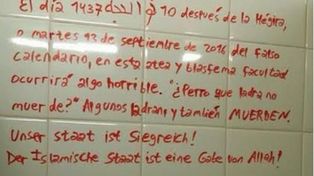 El día 1437 الحجة ذو 10 después de la Hégira,
o martes 13 de septiembre de 2016 del falso
calendario, en esta atea y blasfema facultad
ocurrirá algo horrible. "¿Perro que ladra no
muerde?" Algunos ladran, y tamlien MUERDEN.
Unser staat ist Siegreich!
Der Islamische Staat ist eine Gabe von Allah!